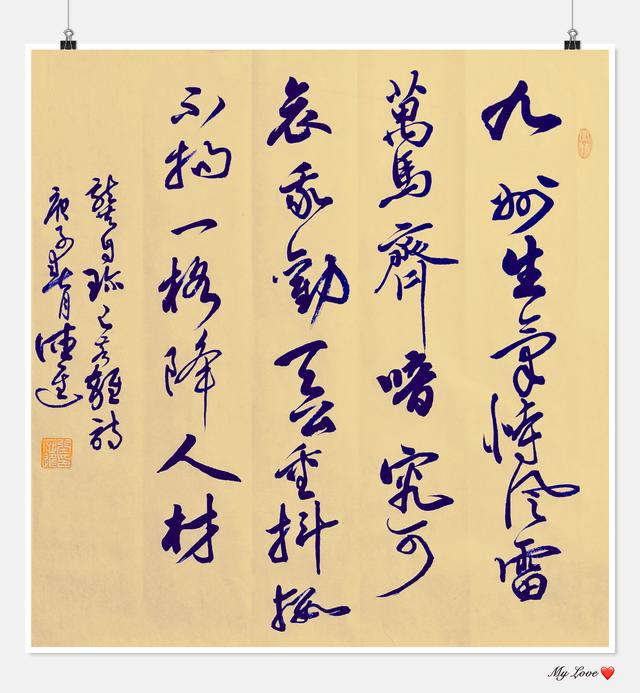 九州生氣恃風雷
萬馬齊喑究可
哀我勸天公重抖擻
不拘一格降人材
龔自珍己亥雜詩
庚子春月
My Love ❤️